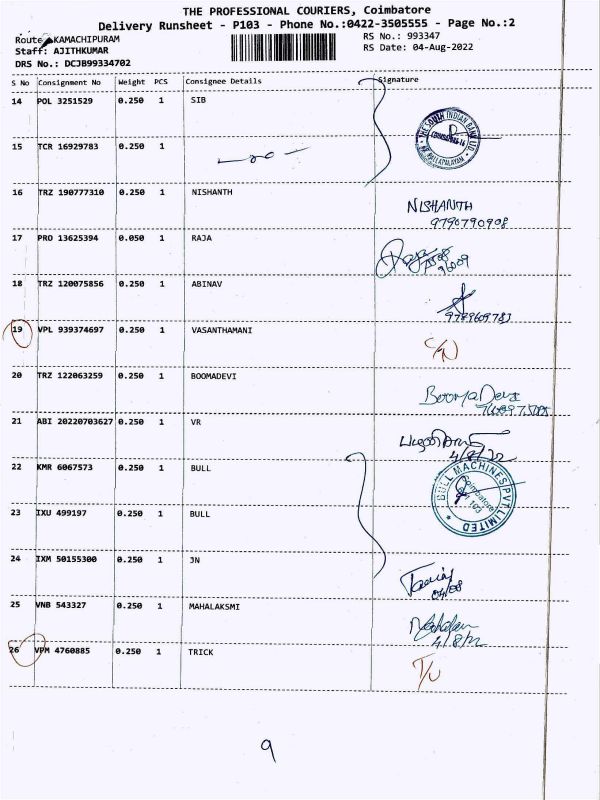 THE PROFESSIONAL COURIERS, Coimbatore
Delivery Runsheet - P103 - Phone No.:0422-3505555 - Page No.:2
Route: KAMACHIPURAM RS No.: 993347
Staff: AJITHKUMAR RS Date: 04-Aug-2022
DRS No.: DCJB99334702
S No Consignment No Weight PCS Consignee Details Signature
14 POL 3251529 0.250 1 SIB
THE SOUTH INDIAN BANK LTD.
15 TCR 16929783 0.250 1
16 TRZ 190777310 0.250 1 NISHANTH NISHANTH
9790790908
17 PRO 13625394 0.050 1 RAJA Raja
18 TRZ 120075856 0.250 1 ABINAV
19 VPL 939374697 0.250 1 VASANTHAMANI C/N
20 TRZ 122063259 0.250 1 BOOMADEVI Booma Devi
21 ABI 20220703627 0.250 1 VR
4/8/22
22 KMR 6067573 0.250 1 BULL
BULL MACHINES PVT LIMITED
Coimbatore
23 IXU 499197 0.250 1 BULL
24 IXM 50155300 0.250 1 JN
04/08
25 VNB 543327 0.250 1 MAHALAKSMI
4/8/22
26 VPM 4760885 0.250 1 TRICK T/U
9